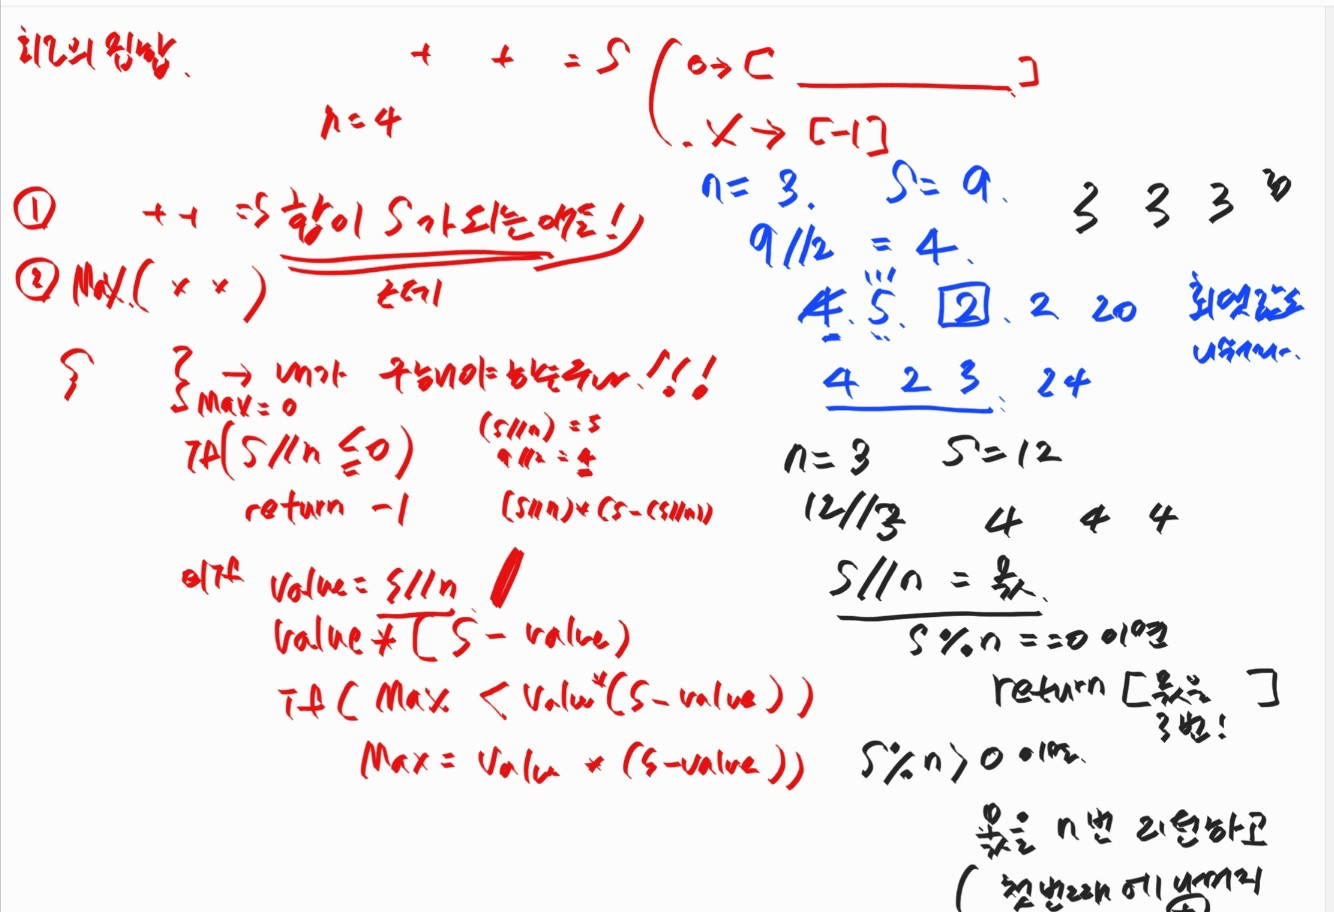 최고의 집합.
+ + = S ( o → [ ]
n = 4
. X → [-1]
① + + = S 합이 S가 되는 애들!
② Max.( * * )
{ } → 내가 구해야 하는구나!!!
Max = 0
If(S//n ≤ 0)
return -1
(S//n) = S
9//2 = 4
(S//n)*(S-(S//n))
value = S//n
value * (S - value)
If( Max < value*(S-value))
Max = value * (S-value))
n = 3. S = 9.
9//2 = 4.
4. 5. 2. 2 20
4 2 3. 24
3 3 3
n = 3 S = 12
12//3 4 4 4
S//n = 몫.
S%n == 0 이면
return [몫을 ]
3번!
S%n > 0 이면.
몫을 n번 리턴하고
( 첫번째에 나머지
+